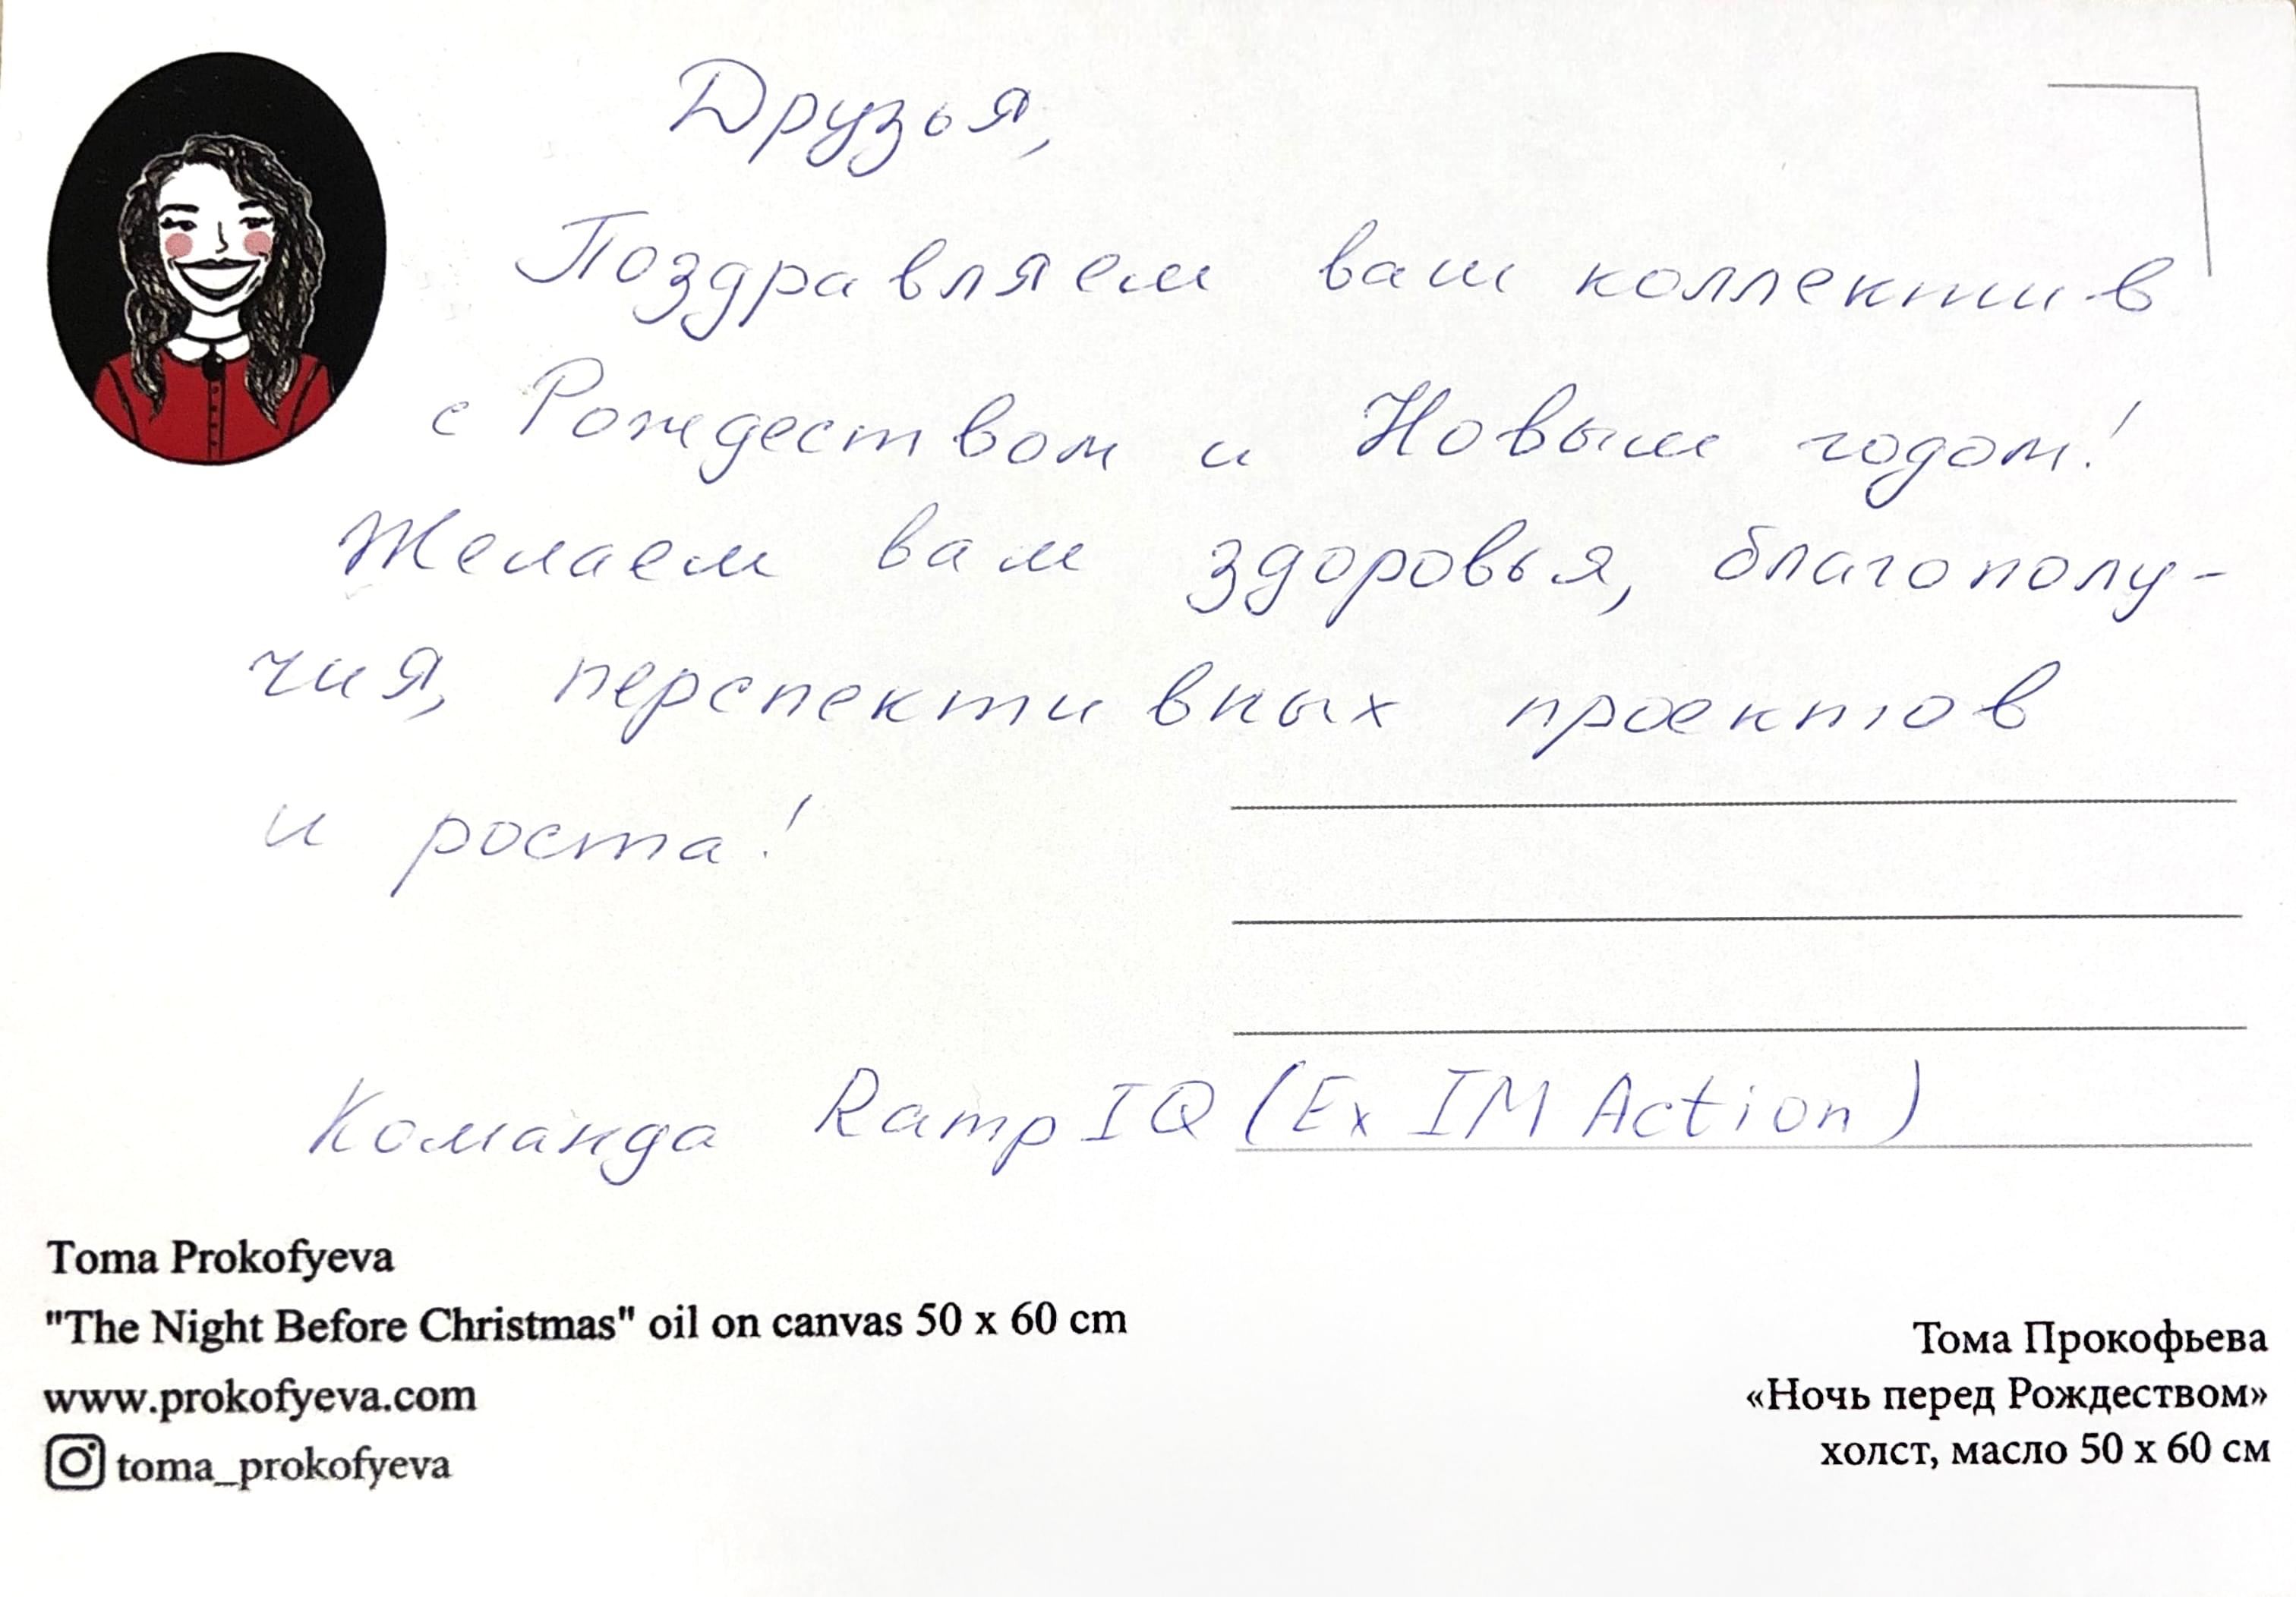 Друзья,
Поздравляем ваш коллектив
с Рождеством и Новым годом!
Желаем вам здоровья, благополу-
чия, перспективных проектов
и роста!
Команда Ramp IQ (Ex IM Action)
Toma Prokofyeva
"The Night Before Christmas" oil on canvas 50 x 60 cm
www.prokofyeva.com
toma_prokofyeva
Тома Прокофьева
«Ночь перед Рождеством»
холст, масло 50 х 60 см